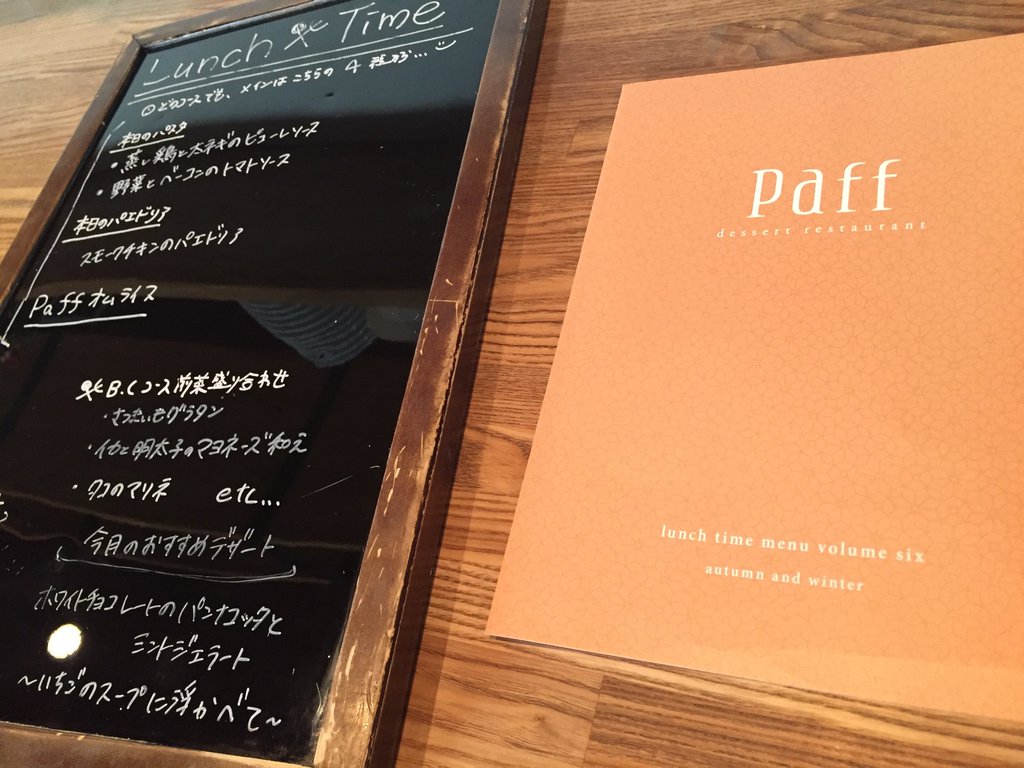 Lunch Time
どのコースでも、メインはこちらの 4 種から...
本日のパスタ
・蒸し鶏と太ネギのピューレソース
・野菜とベーコンのトマトソース
本日のパエドリア
スモークチキンのパエドリア
Paff オムライス
B.Cコース前菜盛り合わせ
・さつまいもグラタン
・イカと明太子のマヨネーズ和え
・タコのマリネ etc...
今月のおすすめデザート
ホワイトチョコレートのパンナコッタと
ミントジェラート
〜いちごのスープに浮かべて〜
paff
dessert restaurant
lunch time menu volume six
autumn and winter